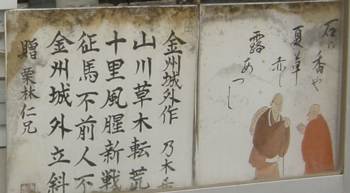 石の香や
夏草赤く
露あつし
金州城外作 乃木
山川草木転荒
十里風腥新戦
征馬不前人不
金州城外立斜
贈 栗林仁兄